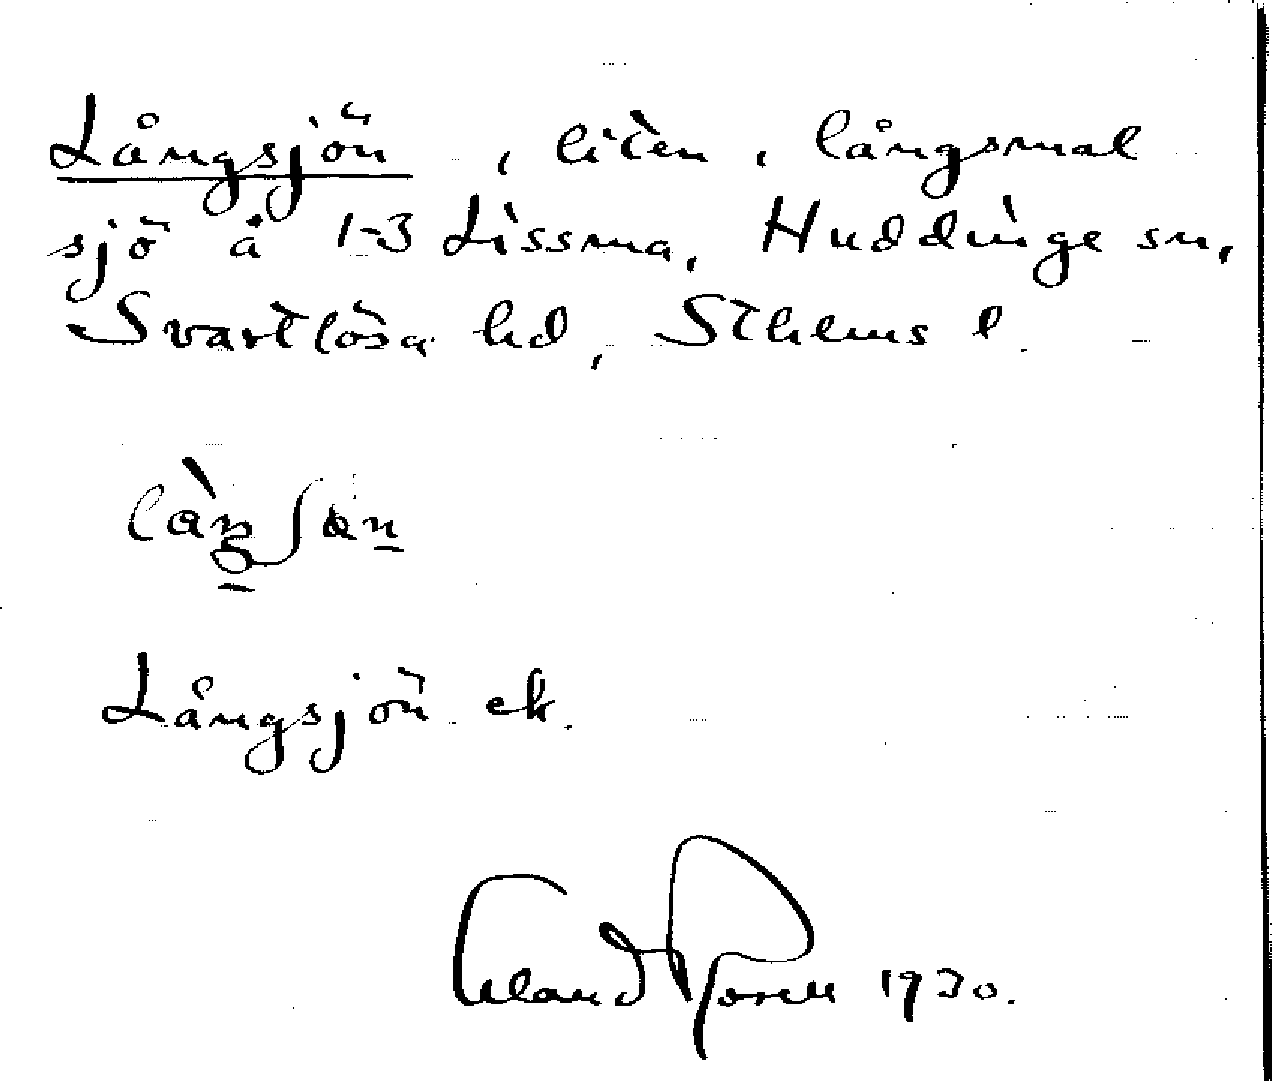 Långsjön, liten, långsmal
sjö å 1-3 Lissma, Huddinge sn,
Svartlösa hd, Sthlms l.
Långsjön ek.
Erland Rosell 1930.